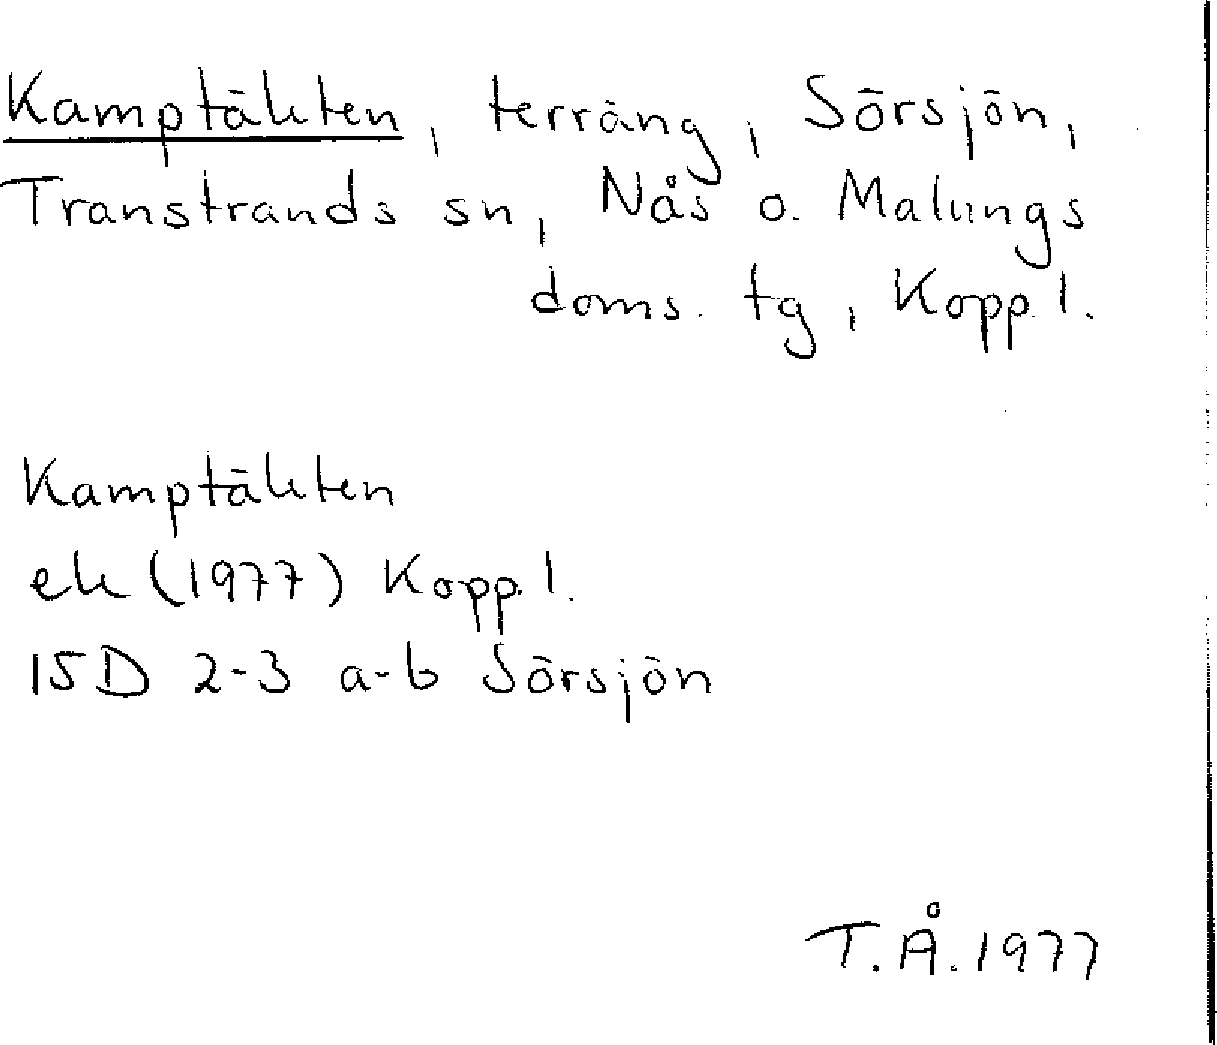 Kamptäkten, terräng, Sörsjön,
Transtrands sn, Nås o. Malungs
doms. tg, Kopp. l.
Kamptäkten
ek (1977) Kopp. l.
15D 2-3 a-b Sörsjön
T.Å. 1977